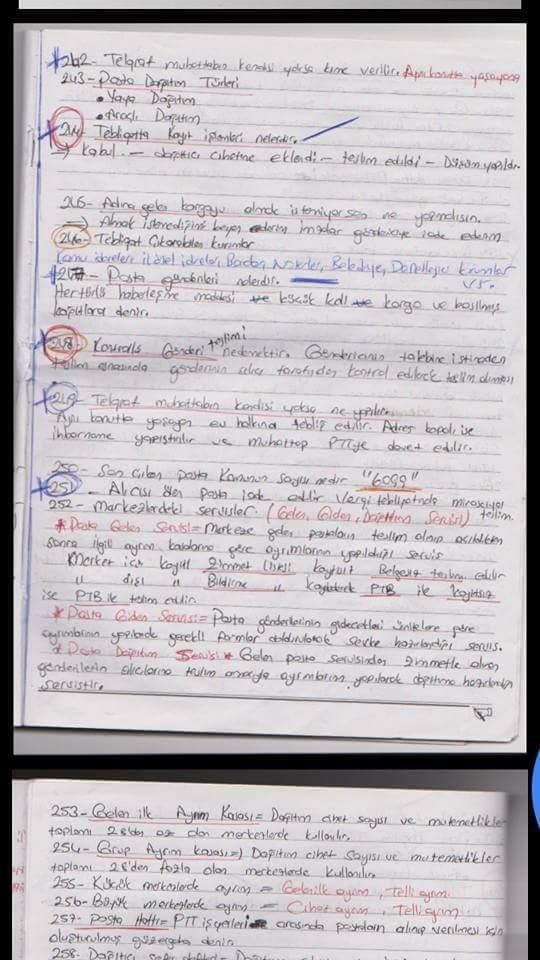 242- Telgraf muhattabın kendisi yoksa kime verilir. Aynı konutta yaşayana
243- Posta Dağıtım Türleri
• Yaya Dağıtım
• Araçlı Dağıtım
244- Tebligatta Kayıt işlemleri nelerdir.
→ Kabul. - dağıtıcı cihetine eklendi - teslim edildi - Düşüm yapıldı.
245- Adına gelen kargoyu almak istemiyorsan ne yapmalısın.
→ Almak istemediğini beyan ederim imzalar göndericiye iade ederim
246- Tebligat Çıkarabilen kurumlar
Kamu idareleri, il özel idareleri, Barolar, Noterler, Belediye, Denetleyici kurumlar
vs.
247- Posta gönderileri nelerdir.
Her türlü haberleşme maddesi ve küçük koli ve kargo ve basılmış
kağıtlara denir.
248- Kontrollü Gönderi teslimi nedemektir. Göndericinin talebine istinaden
teslim esnasında gönderinin alıcı tarafından kontrol edilerek teslim alınması
249- Telgraf muhattabın kendisi yoksa ne yapılır.
Aynı konutta yaşayan ev halkına tebliğ edilir. Adres kapalı ise
ihbarname yapıştırılır ve muhattap PTT'ye davet edilir.
250- Son çıkan posta Kanunun Sayısı nedir "6099"
251- Alıcısı ölen posta iade edilir Vergi tebligatında mirasçıya
teslim.
252- Merkezlerdeki servisler. (Gelen, Giden, Dağıtım Servisi)
* Posta Gelen Servisi = Merkeze gelen postaların teslim alınıp açıldıktan
sonra ilgili ayrım kasalarına göre ayrımların yapıldığı servis
Merkez içi kayıtlı Zimmet Listesi kayıtsız Belgesiz teslim edilir
" dışı " Bildirine " kaydederek PTB ile kayıtsız
ise PTB ile teslim edilir
* Posta Giden Servisi = Posta gönderilerinin gidecekleri ünitelere göre
ayrımlarının yapılarak gerekli formlar doldurularak sevke hazırlandığı servis.
* Posta Dağıtım Servisi * Gelen posta servisinden zimmetle alınan
gönderilerin alıcılarına teslim amacıyla ayrımlarını yapılarak dağıtıma hazırlandığı
servistir.
253- Gelen ilk Ayrım Kasası = Dağıtım cihet sayısı ve mutemetlikler
toplamı 28'den az olan merkezlerde kullanılır.
254- Grup Ayrım kasası => Dağıtım cihet Sayısı ve mutemetlikler
toplamı 28'den fazla olan merkezlerde kullanılır.
255- Küçük merkezlerde ayrım = Gelen ilk ayrım, Telli ayrım
256- Büyük merkezlerde ayrım = Cihet ayrım, Telli ayrım
257- Posta Hattı = PTT işyerleri arasında postaların alınıp verilmesi için
oluşturulmuş güzergaha denir
258- Dağıtıcı